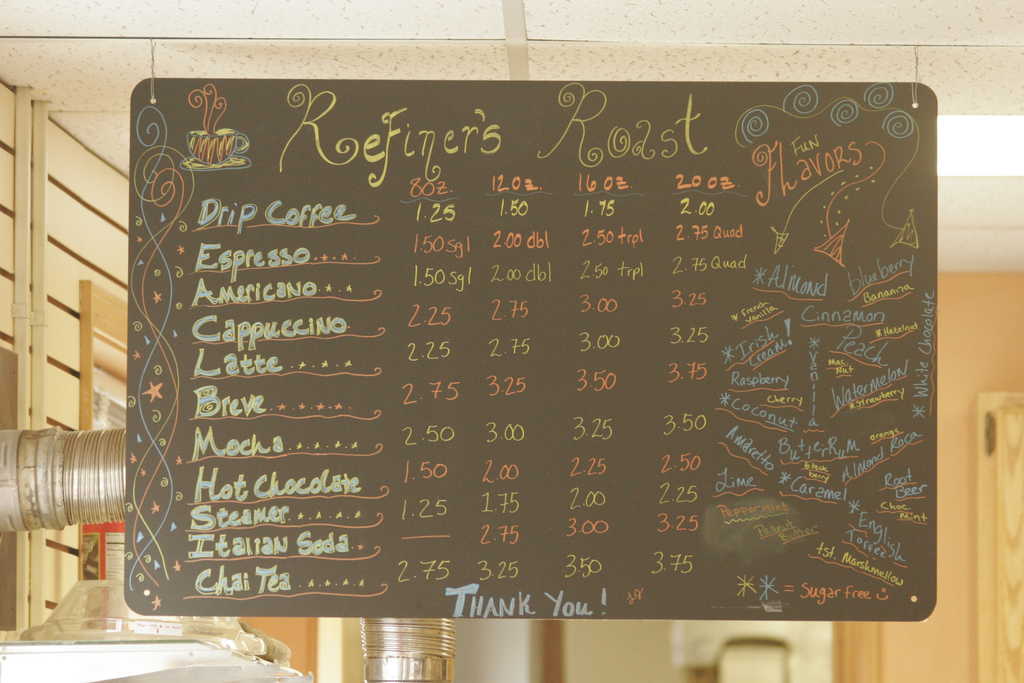 Refiner's Roast
8oz. 12oz. 16oz. 20oz.
Drip Coffee 1.25 1.50 1.75 2.00
Espresso 1.50 sgl 2.00 dbl 2.50 trpl 2.75 Quad
Americano 1.50 sgl 2.00 dbl 2.50 trpl 2.75 Quad
Cappuccino 2.25 2.75 3.00 3.25
Latte 2.25 2.75 3.00 3.25
Breve 2.75 3.25 3.50 3.75
Mocha 2.50 3.00 3.25 3.50
Hot Chocolate 1.50 2.00 2.25 2.50
Steamer 1.25 1.75 2.00 2.25
Italian Soda — 2.75 3.00 3.25
Chai Tea 2.75 3.25 3.50 3.75
Thank You!
Fun
Flavors
*Almond
blueberry
Bananna
*French
Vanilla
Cinnamon
*Irish
Cream!
*Vanilla
Peach
*Hazelnut
Mac.
Nut
*White Chocolate
Raspberry
Cherry
Watermelon
*Strawberry
*Coconut
Amaretto
ButterRum
orange
Almond Roca
Black
berry
Lime
*Caramel
Root
Beer
Peppermint
Peanut
Butter
Choc.
Mint
*Engl.
Toffee
tst. Marshmellow
** = Sugar free